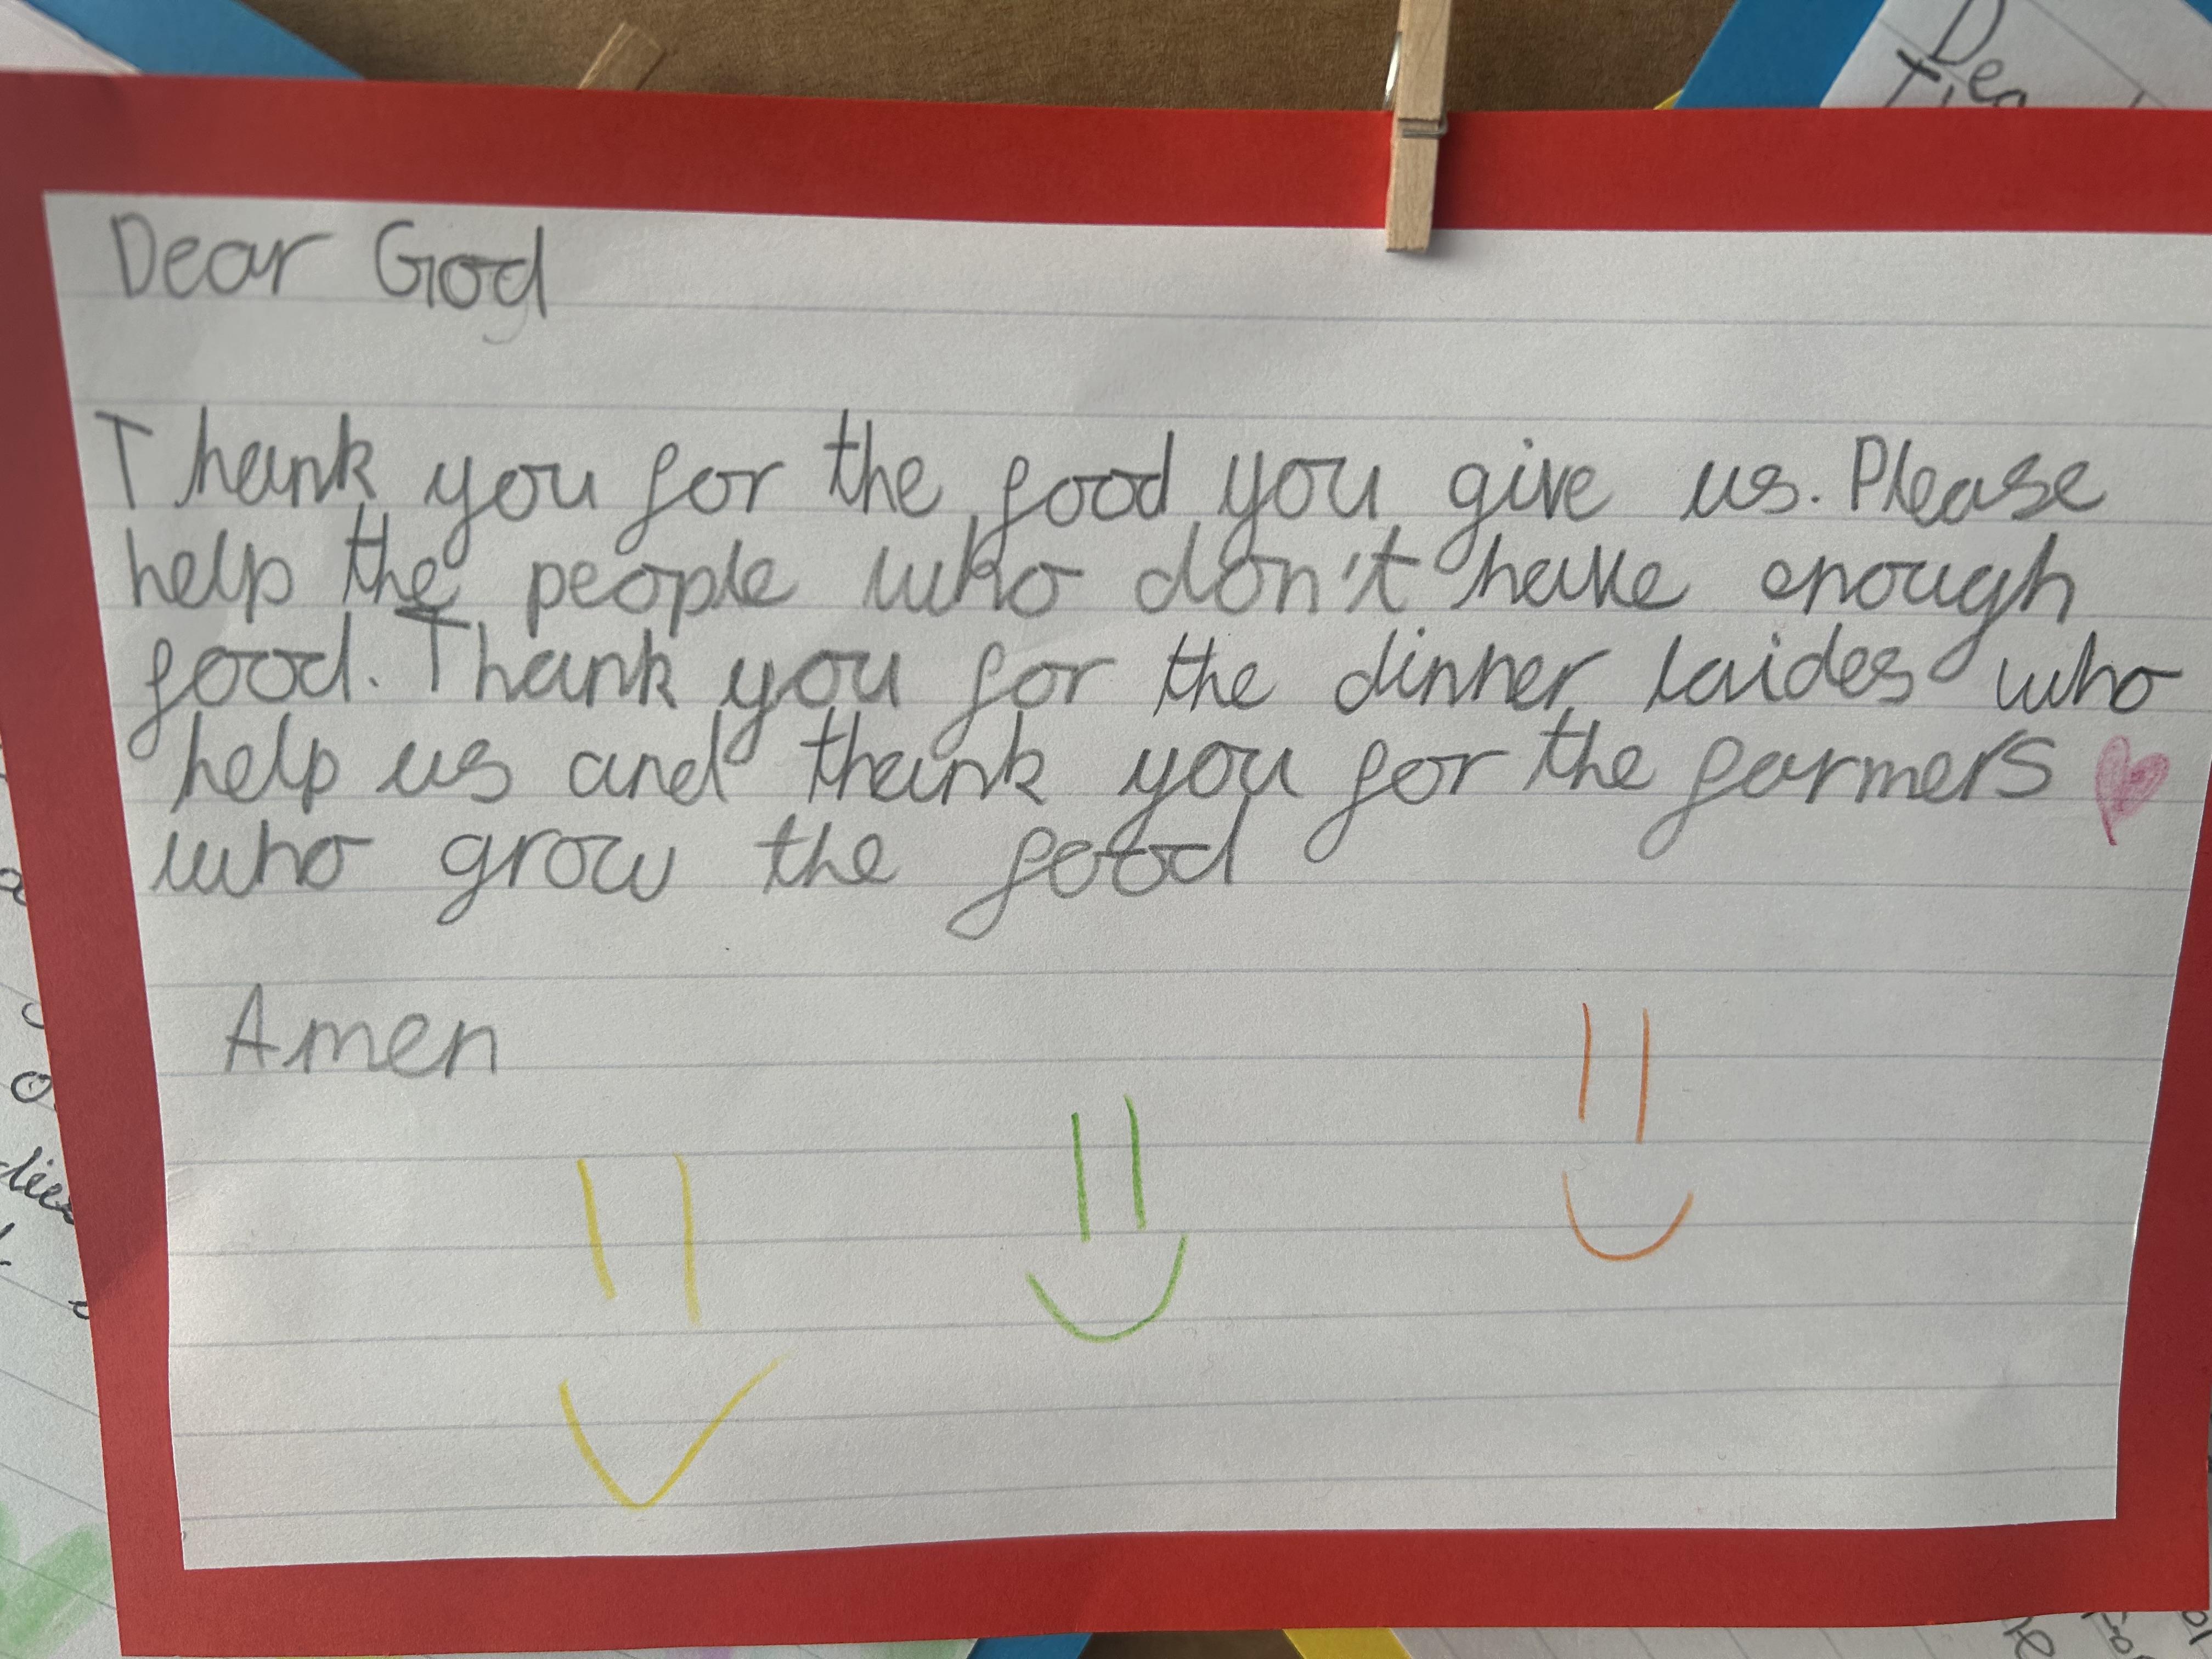 Dear God
Thank you for the food you give us. Please
help the people who don't have enough
food. Thank you for the dinner laides who
help us and thank you for the farmers
who grow the food
Amen